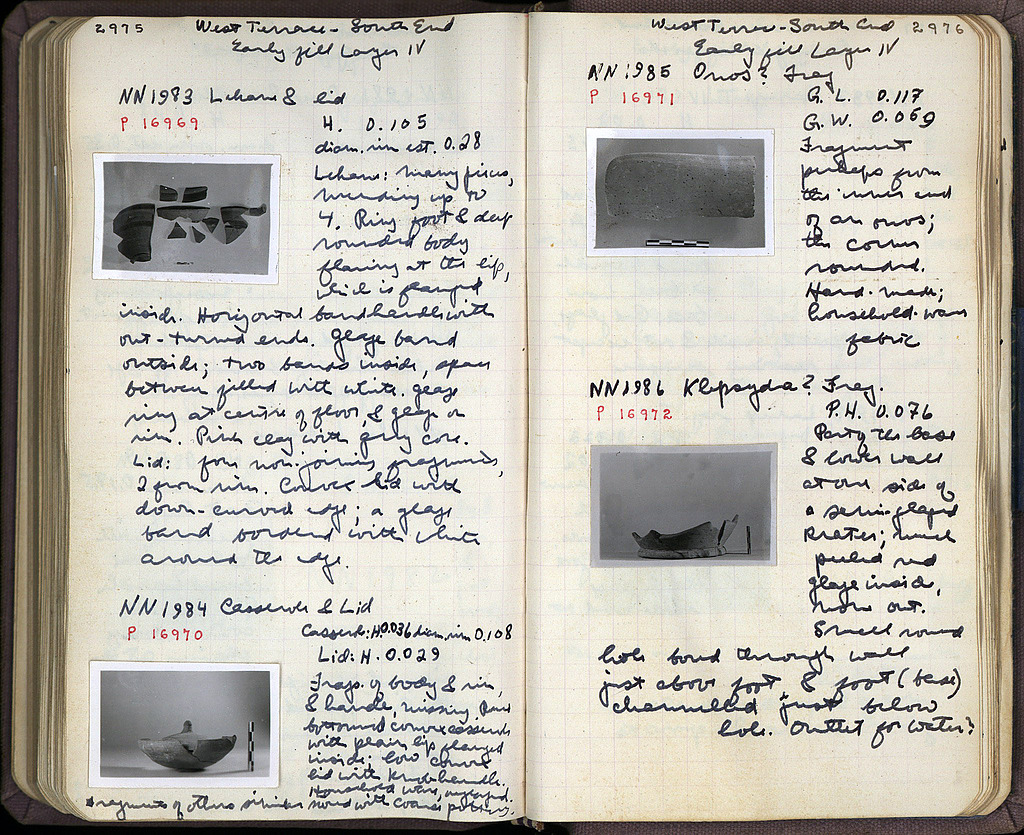 2975 West Terrace - South End
Early fill Layer IV
NN 1983 Lekane & lid
P 16969
H. 0.105
diam. rim est. 0.28
Lekane: many pieces,
mending up to
4. Ring foot & deep
rounded body
flaring at the lip,
which is flanged
inside. Horizontal band handles with
out-turned ends. Glaze band
outside; two bands inside, space
between filled with white. glaze
ring at centre of floor, & glaze on
rim. Pink clay with grey core.
Lid: four non-joining fragments,
2 from rim. Convex lid with
down-curved edge; a glaze
band bordered with white
around the edge.
NN 1984 Casserole & Lid
P 16970
Casserole: H. 0.036 diam. rim 0.108
Lid: H. 0.029
Frags. of body & rim,
& handle, missing. Round
bottomed convex casserole
with plain lip flanged
inside; low convex
lid with knob handle.
Household ware, unglazed.
Fragments of others similar found with coarse pottery.
West Terrace - South End 2976
Early fill Layer IV
NN 1985 Onos? Frag
P 16971
G. L. 0.117
G. W. 0.069
Fragment
perhaps from
the inner end
of an onos;
the corner
rounded.
Hand-made;
household ware
fabric
NN 1986 Klepsydra? Frag.
P 16972
P.H. 0.076
Part of the base
& lower wall
at one side of
a semi-glazed
krater; much
peeled red
glaze inside,
none out.
Small round
hole bored through wall
just above foot & foot (base)
channelled just below
hole. Outlet for water?